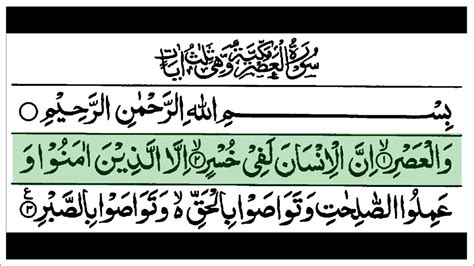 سُوْرَةُ الْعَصْرِ مَكِّيَّةٌ وَّهِىَ ثَلٰثُ اٰيَاتٍ
بِسْمِ اللّٰهِ الرَّحْمٰنِ الرَّحِيْمِ ○
وَالْعَصْرِۙ‏﴿۱﴾ اِنَّ الْاِنْسَانَ لَفِىْ خُسْرٍۙ‏﴿۲﴾ اِلَّا الَّذِيْنَ اٰمَنُوْا وَ
عَمِلُوا الصّٰلِحٰتِ وَتَوَاصَوْا بِالْحَقِّ ۙ وَتَوَاصَوْا بِالصَّبْرِ‏﴿۳﴾ ع